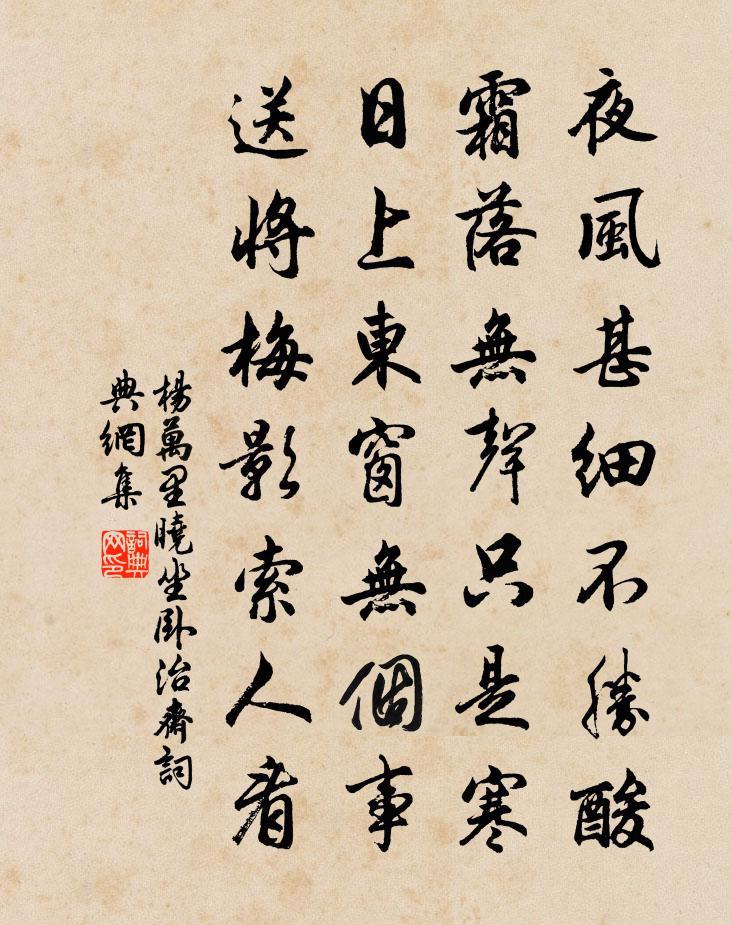 夜風甚細不勝酸
霜落無聲只是寒
日上東窗無個事
送將梅影索人看
楊萬里曉坐卧治齋詞
典網集
詞典
网印